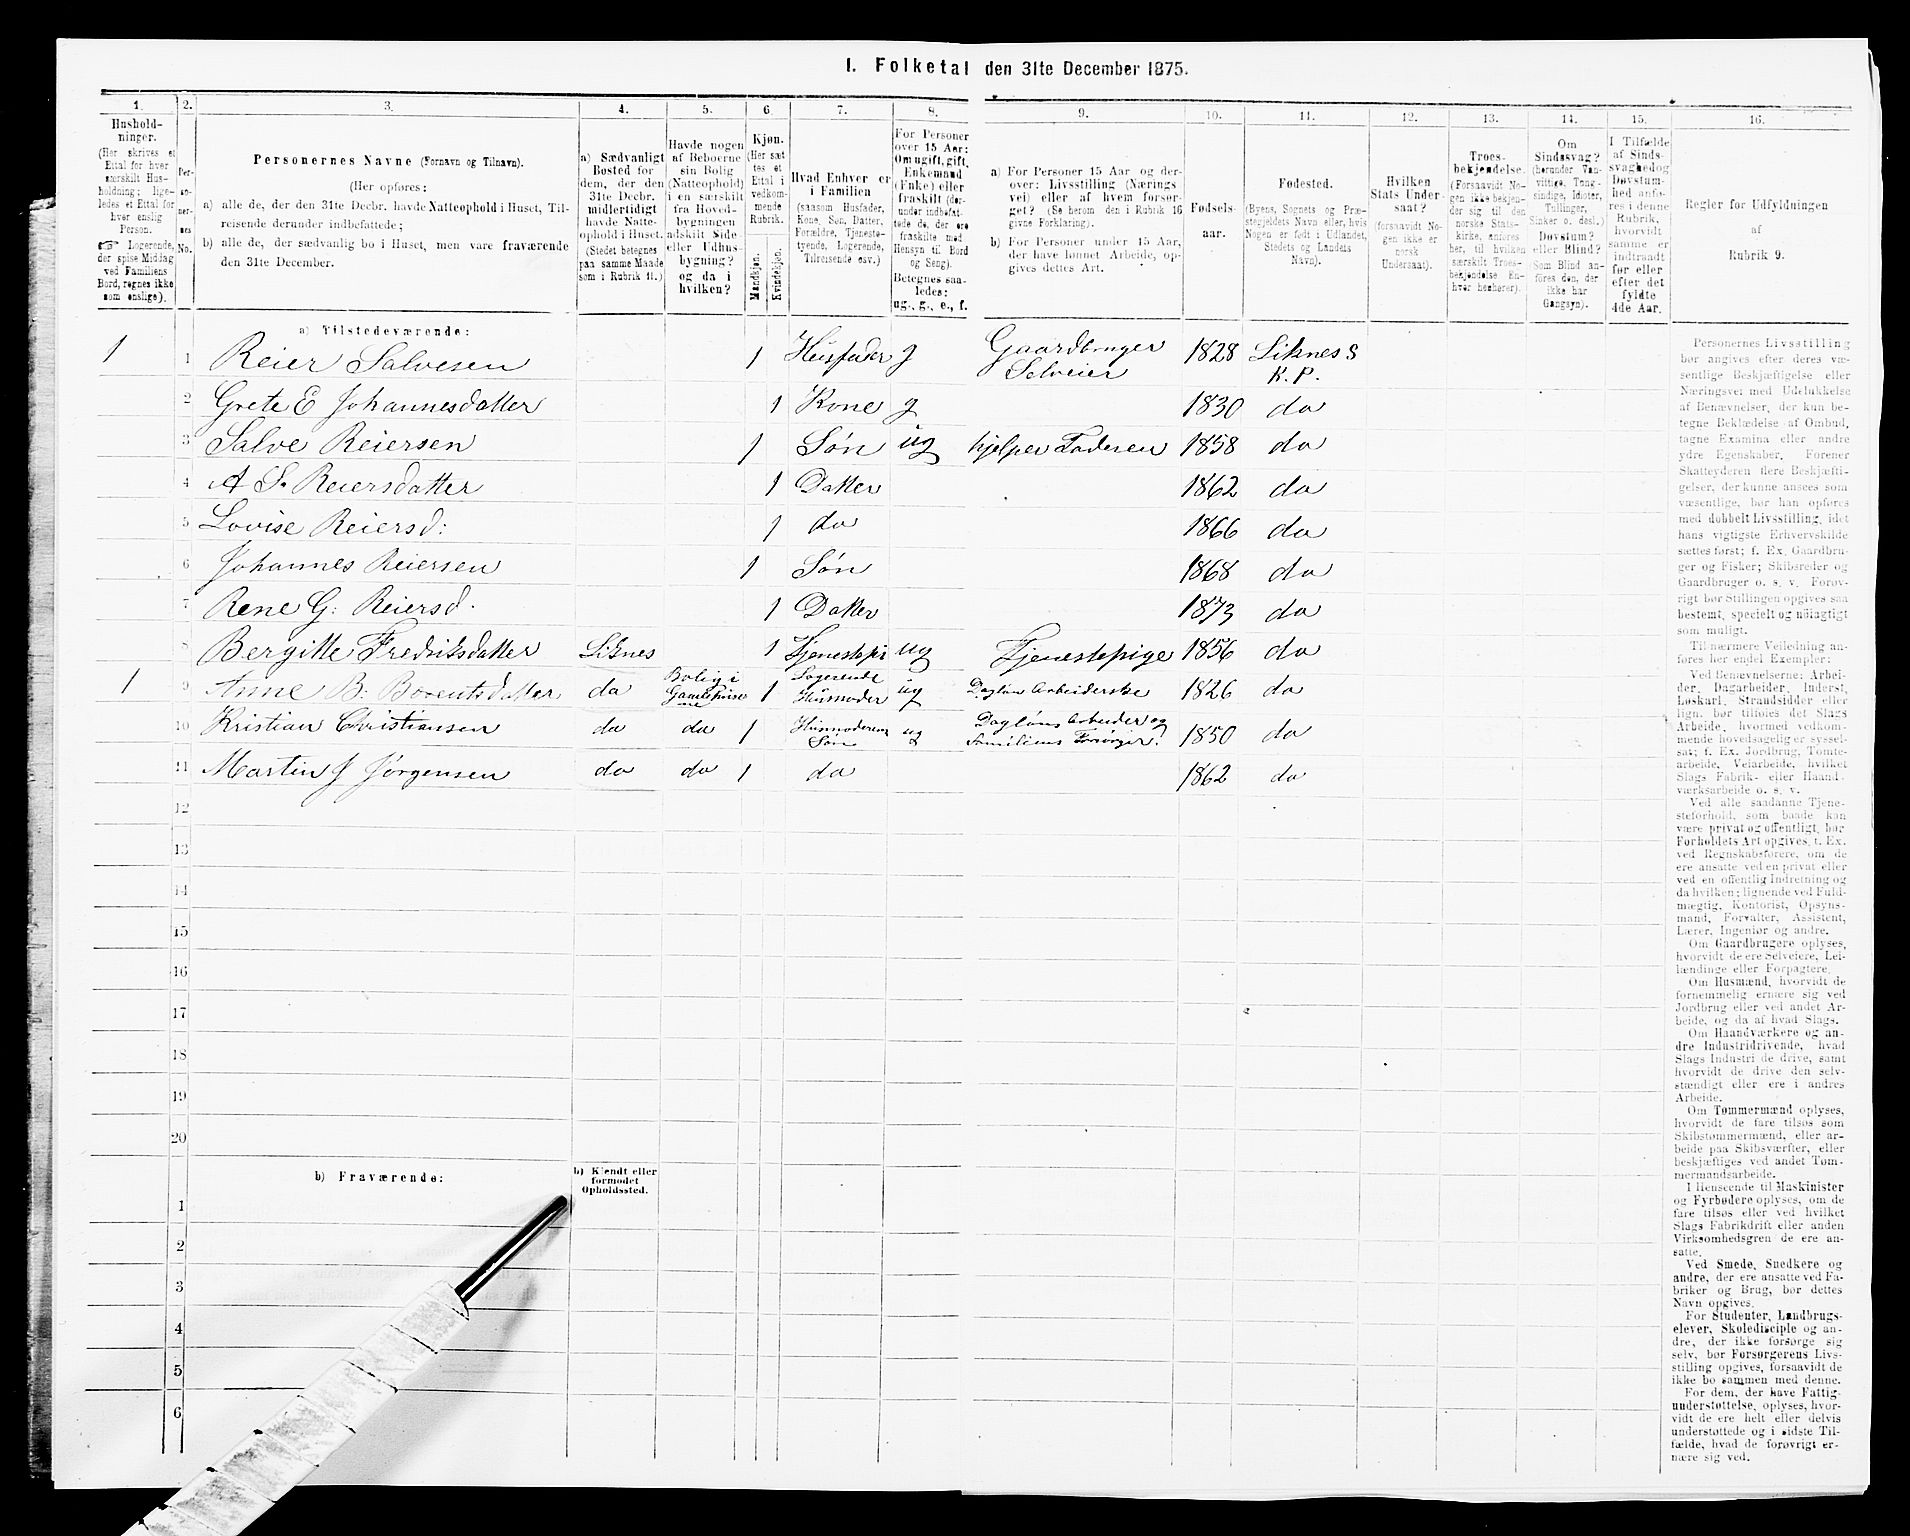 I. Folketal den 31te December 1875.
1. 2. 3. 4. 5. 6. 7. 8. 9. 10. 11. 12. 13. 14. 15. 16.
Hushold-
ninger.
(Her skrives et
Ettal for hver
særskilt Hus-
holdning; lige-
ledes et Ettal for
hver enslig
Person.
☞ Logerende,
der spise Middag
ved Familiens
Bord, regnes ikke
som enslige).
Per-
so-
ner-
nes
No.
Personernes Navne (Fornavn og Tilnavn).
(Her opføres:
a) alle de, der den 31te Decbr. havde Natteophold i Huset, Til-
reisende derunder indbefattede;
b) alle de, der sædvanlig bo i Huset, men vare fraværende
den 31te December.
a) Sædvanligt
Bosted for
dem, der den
31te Decbr.
midlertidigt
havde Natte-
ophold i Huset.
(Stedet betegnes
paa samme Maade
som i Rubrik 11.)
Havde nogen
af Beboerne
sin Bolig
(Natteophold)
i en særskilt
fra Hoved-
bygningen
adskilt Side-
eller Udhus-
bygning?
og da i
hvilken?
Kjøn.
(Her sæt
tes et
Ettal i
vedkom-
mende
Rubrik.
Mandkjøn.
Kvindekjøn.
Hvad Enhver er
i Familien
(saasom Husfader,
Kone, Søn, Datter,
Forældre, Tjeneste-
tyende, Logerende,
Tilreisende osv.)
For Personer
over 15 Aar:
Om ugift, gift,
Enkemand
(Enke) eller
fraskilt (der-
under indbefat-
tede de, der ere
fraskilte med
Hensyn til Bord
og Seng).
Betegnes saa-
ledes:
ug., g., e., f.
a) For Personer 15 Aar og der-
over: Livsstilling (Nærings
vei) eller af hvem forsør-
get? (Se herom den i Rubrik 16
givne Forklaring).
b) For Personer under 15 Aar,
der have lønnet Arbeide, op-
gives dettes Art.
Fødsels-
aar.
Fødested.
(Byens, Sognets og Præ-
stegjeldets Navn eller, hvis
Nogen er født i Udlandet,
Stedets og Landets
Navn).
Hvilken
Stats Under-
saat?
(forsaavidt No-
gen ikke er
norsk
Undersaat).
Troes-
bekjendelse.
(Forsaavidt No-
gen ikke bekjen-
der sig til den
norske Stats-
kirke, anføres
her, til hvilken
særskilt Troes-
bekjendelse En-
hver henhører).
Om
Sindssvag?
(herunder Van-
vittige, Tung-
sindige, Idioter,
Tullinger,
Sinker o. desl.)
Døvstum?
eller Blind?
(Som Blind an-
føres den, der
ikke har
Gangsyn).
I Tilfælde
af Sinds-
svaghed og
Døvstum-
hed anfø-
res i denne
Rubrik,
hvorvidt
samme er
indtraadt
før eller
efter det
fyldte
4de Aar.
Regler for Udfyldningen
af
Rubrik 9.
a) Tilstedeværende:
1 1 Reier Salvesen 1 Husfader g Gaardbruger 1828 Siknes S
Selveier K. P.
2 Grete E Johannesdatter 1 Kone g 1830 do
3 Salve Reiersen 1 Søn ug hjelper Faderen 1858 do
4 A S. Reiersdatter 1 Datter 1862 do
5 Lovise Reiersd: 1 do 1866 do
6 Johannes Reiersen 1 Søn 1868 do
7 Rene G: Reiersd. 1 Datter 1873 do
8 Bergitte Fredriksdatter Siknes 1 Tjenestepi ug Tjenestepige 1856 do
1 9 Anne B: Berentsdatter do Bolig i 1 Logerende
Husmoder ug Dagløns Arbeiderske 1826 do
10 Kristian Christiansen do do 1 Husmoderens
Søn ug Dagløns Arbeider og
Familiens Forsørger. 1850 do
11 Martin J Jørgensen do do 1 do 1862 do
12
13
14
15
16
17
18
19
20
b) Fraværende:
b) Kjendt eller
formodet
Opholdssted.
1
2
3
4
5
6
Personernes Livsstilling
bør angives efter deres væ-
sentlige Beskjæftigelse eller
Næringsvei med Udelukkelse
af Benævnelser, der kun be-
tegne Beklædelse af Ombud,
tagne Examina eller andre
ydre Egenskaber. Forener
Skatteyderen flere Beskjæfti-
gelser, der kunne ansees som
væsentlige, bør han opføres
med dobbelt Livsstilling, idet
hans vigtigste Erhvervskilde
sættes først; f. Ex. Gaardbru-
ger og Fisker; Skibsreder og
Gaardbruger o. s. v. Forøv-
rigt bør Stillingen opgives saa
bestemt, specielt og nøiagtigt
som muligt.
Til nærmere Veiledning an-
føres her endel Exempler:
Ved Benævnelserne: Arbei-
der, Dagarbeider, Inderst,
Løskarl, Strandsidder eller
lign. bør tilføies det Slags
Arbeide, hvormed vedkom-
mende hovedsagelig er syssel-
sat; f. Ex. Jordbrug, Tomte-
arbeide, Veiarbeide, hvilket
Slags Fabrik- eller Haand-
værksarbeide o. s. v.
Ved alle saadanne Tjene-
steforhold, som baade kan
være privat og offentligt, bør
Forholdets Art opgives, t. Ex.
ved Regnskabsførere, om de
ere ansatte ved en privat eller
ved en offentlig Indretning og
da hvilken; lignende ved Fuld-
mægtig, Kontorist, Opsyns-
mand, Forvalter, Assistent,
Lærer, Ingeniør og andre.
Om Gaardbrugere oplyses,
hvorvidt de ere Selveiere, Lei-
lændinge eller Forpagtere.
Om Husmænd, hvorvidt de
fornemmelig ernære sig ved
Jordbrug eller ved andet Ar-
beide, og da af hvad Slags.
Om Haandværkere og an-
dre Industridrivende, hvad
Slags Industri de drive, samt
hvorvidt de drive den selv-
stændigt eller ere i andres
Arbeide.
Om Tømmermænd oplyses,
hvorvidt de fare tilsøs som
Skibstømmermænd, eller ar-
beide paa Skibsværfter, eller
beskjæftiges ved andet Tøm-
mermandsarbeide.
I Henseende til Maskinister
og Fyrbødere oplyses, om de
fare tilsøs eller ved hvilket
Slags Fabrikdrift eller anden
Virksomhedsgren de ere an-
satte.
Ved Smede, Snedkere og
andre, der ere ansatte ved Fa-
briker og Brug, bør dettes
Navn opgives.
For Studenter, Landbrugs-
elever, Skoledisciple og an-
dre, der ikke forsørge sig
selv, bør Forsørgerens Livs-
stilling opgives, forsaavidt de
ikke bo sammen med denne.
For dem, der have Fattig-
understøttelse, oplyses, hvor-
vidt de ere helt eller delvis
understøttede og i sidste Til-
fælde, hvad de forøvrigt er-
nære sig ved.